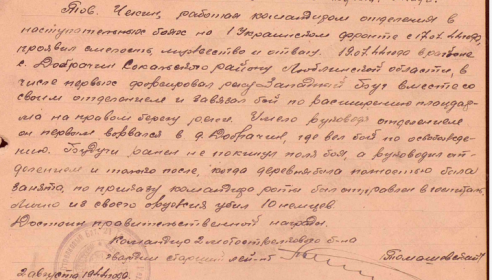 Тов. Чекин, работая командиром отделения в
наступательных боях на 1 Украинском фронте с 17.07.44 года,
проявил смелость, мужество и отвагу. 19.07.44 года в районе
с. Добрачин Сокальского района Львовской области, в
числе первых форсировал реку Западный Буг вместе со
своим отделением и завязал бой по расширению плацдар-
ма на правом берегу реки. Умело руководя отделением
он первым ворвался в д. Добрачин, где вел бой по освобожде-
нию. Будучи ранен не покинул поля боя, а руководил от-
делением и только после, когда деревня была полностью была
занята, по приказу командира роты был отправлен в госпиталь.
Лично из своего оружия убил 10 немцев.
Достоин правительственной награды.
Командир 2 мотострелкового б-на
гвардии старший лейт-т Томашевский
2 августа 1944 года.